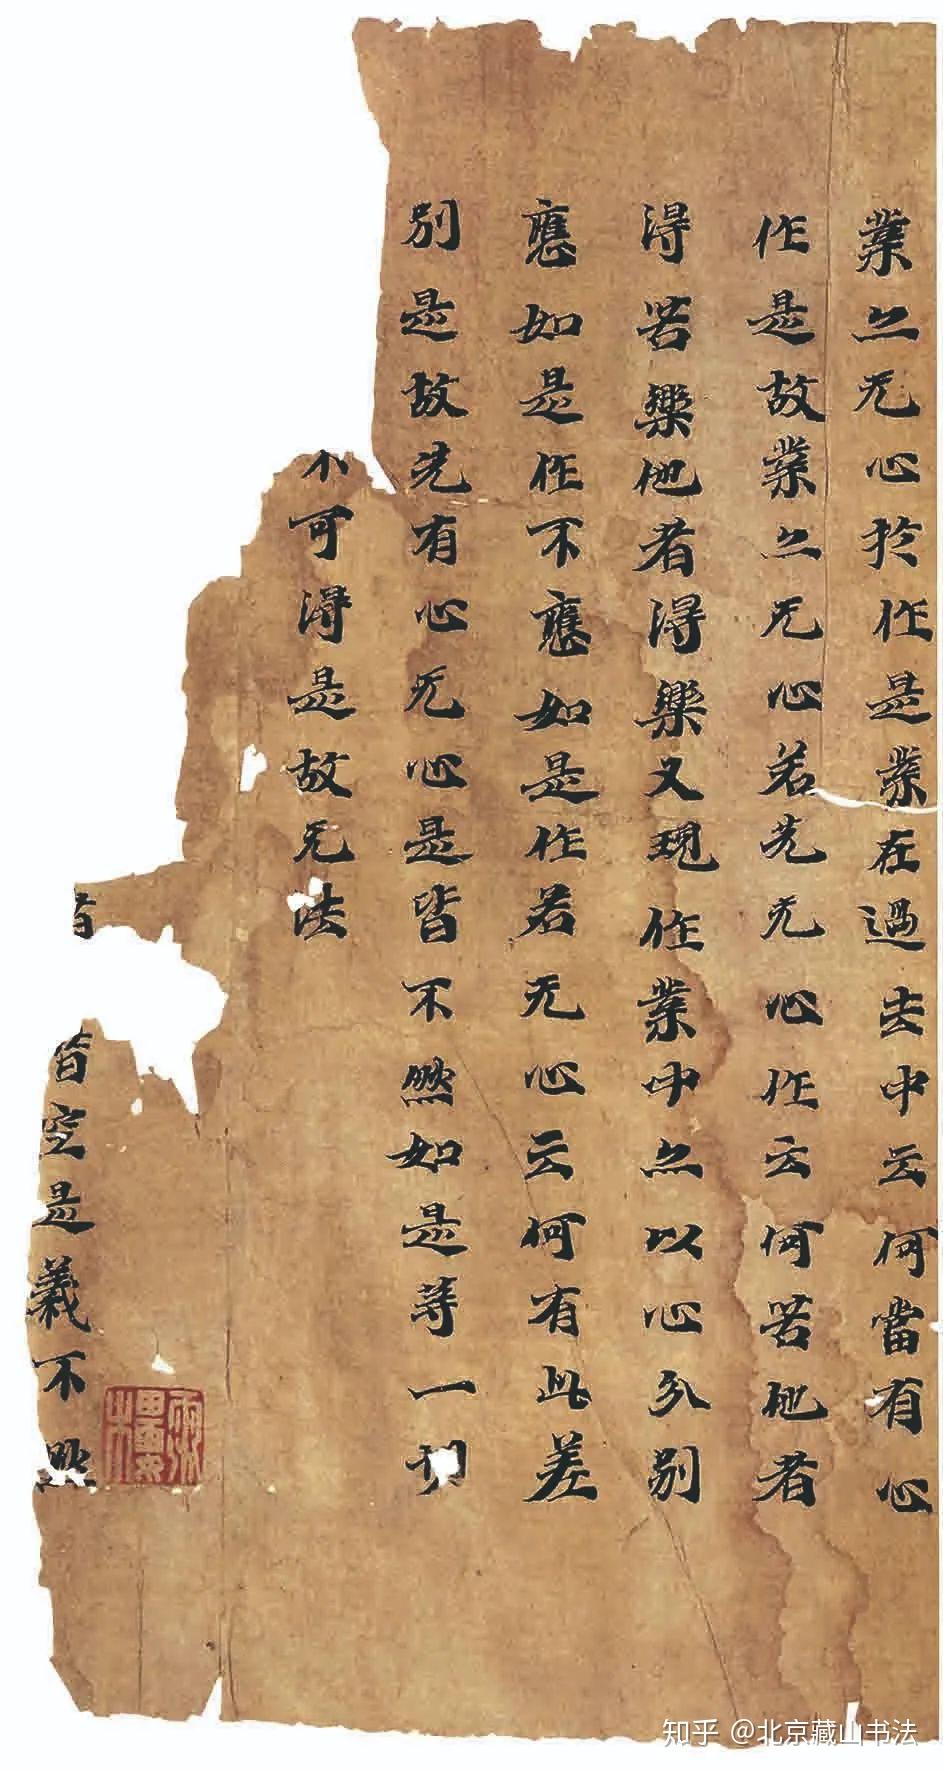 業亦无心於作是業在過去中云何當有心
作是故業亦无心若先无心作云何苦他者
得苦樂他者得樂又現作業中亦以心分別
應如是作不應如是作若无心云何有此差
別是故先有心无心是皆不然如是等一切
不可得是故无法
皆空是義不然
知乎 @北京藏山书法